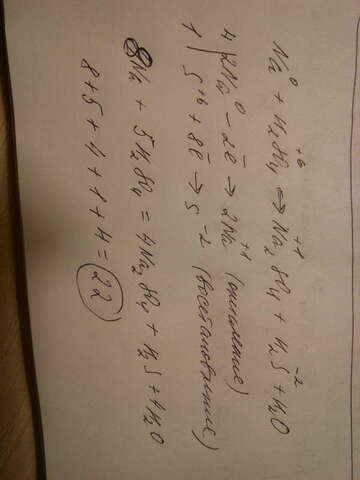 Na⁰ + H₂S⁺⁶O₄ ⇒ Na₂⁺¹SO₄ + H₂S⁻² + H₂O
4 | 2Na⁰ - 2ē → 2Na⁺¹ (окисление)
1 | S⁺⁶ + 8ē → S⁻² (восстановление)
8Na + 5H₂SO₄ = 4Na₂SO₄ + H₂S + 4H₂O
8 + 5 + 4 + 1 + 4 = 22